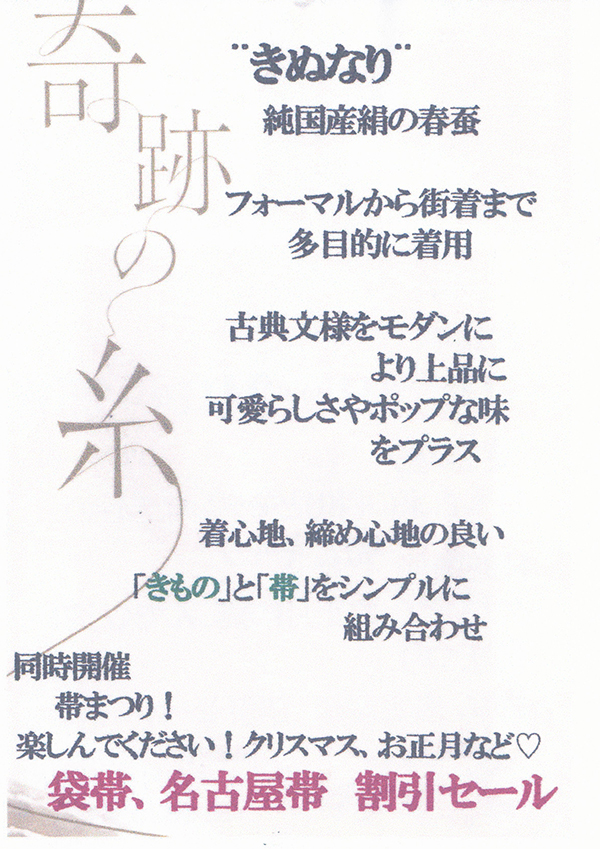 奇跡の糸
"きぬなり"
純国産絹の春蚕
フォーマルから街着まで
多目的に着用
古典文様をモダンに
より上品に
可愛らしさやポップな味
をプラス
着心地、締め心地の良い
「きもの」と「帯」をシンプルに
組み合わせ
同時開催
帯まつり！
楽しんでください！クリスマス、お正月など♡
袋帯、名古屋帯　割引セール